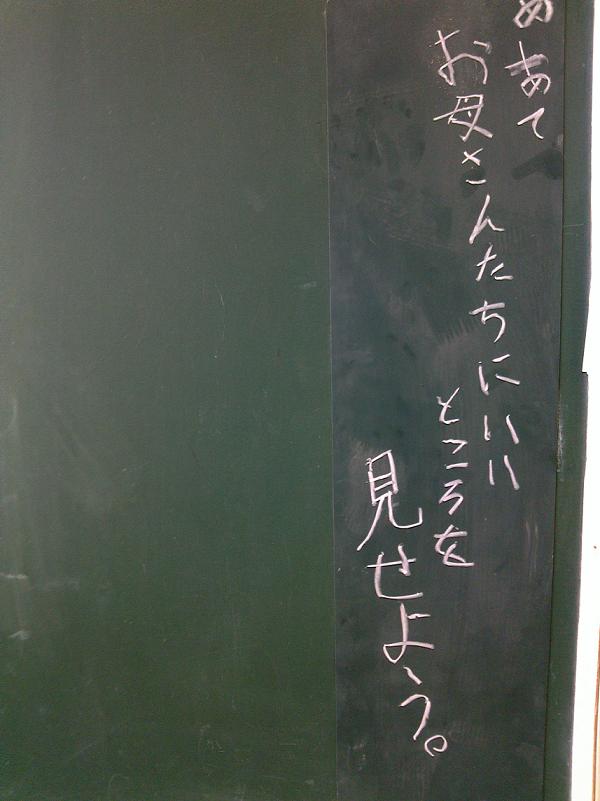 めあて
お母さんたちにいい
ところを
見せよう。